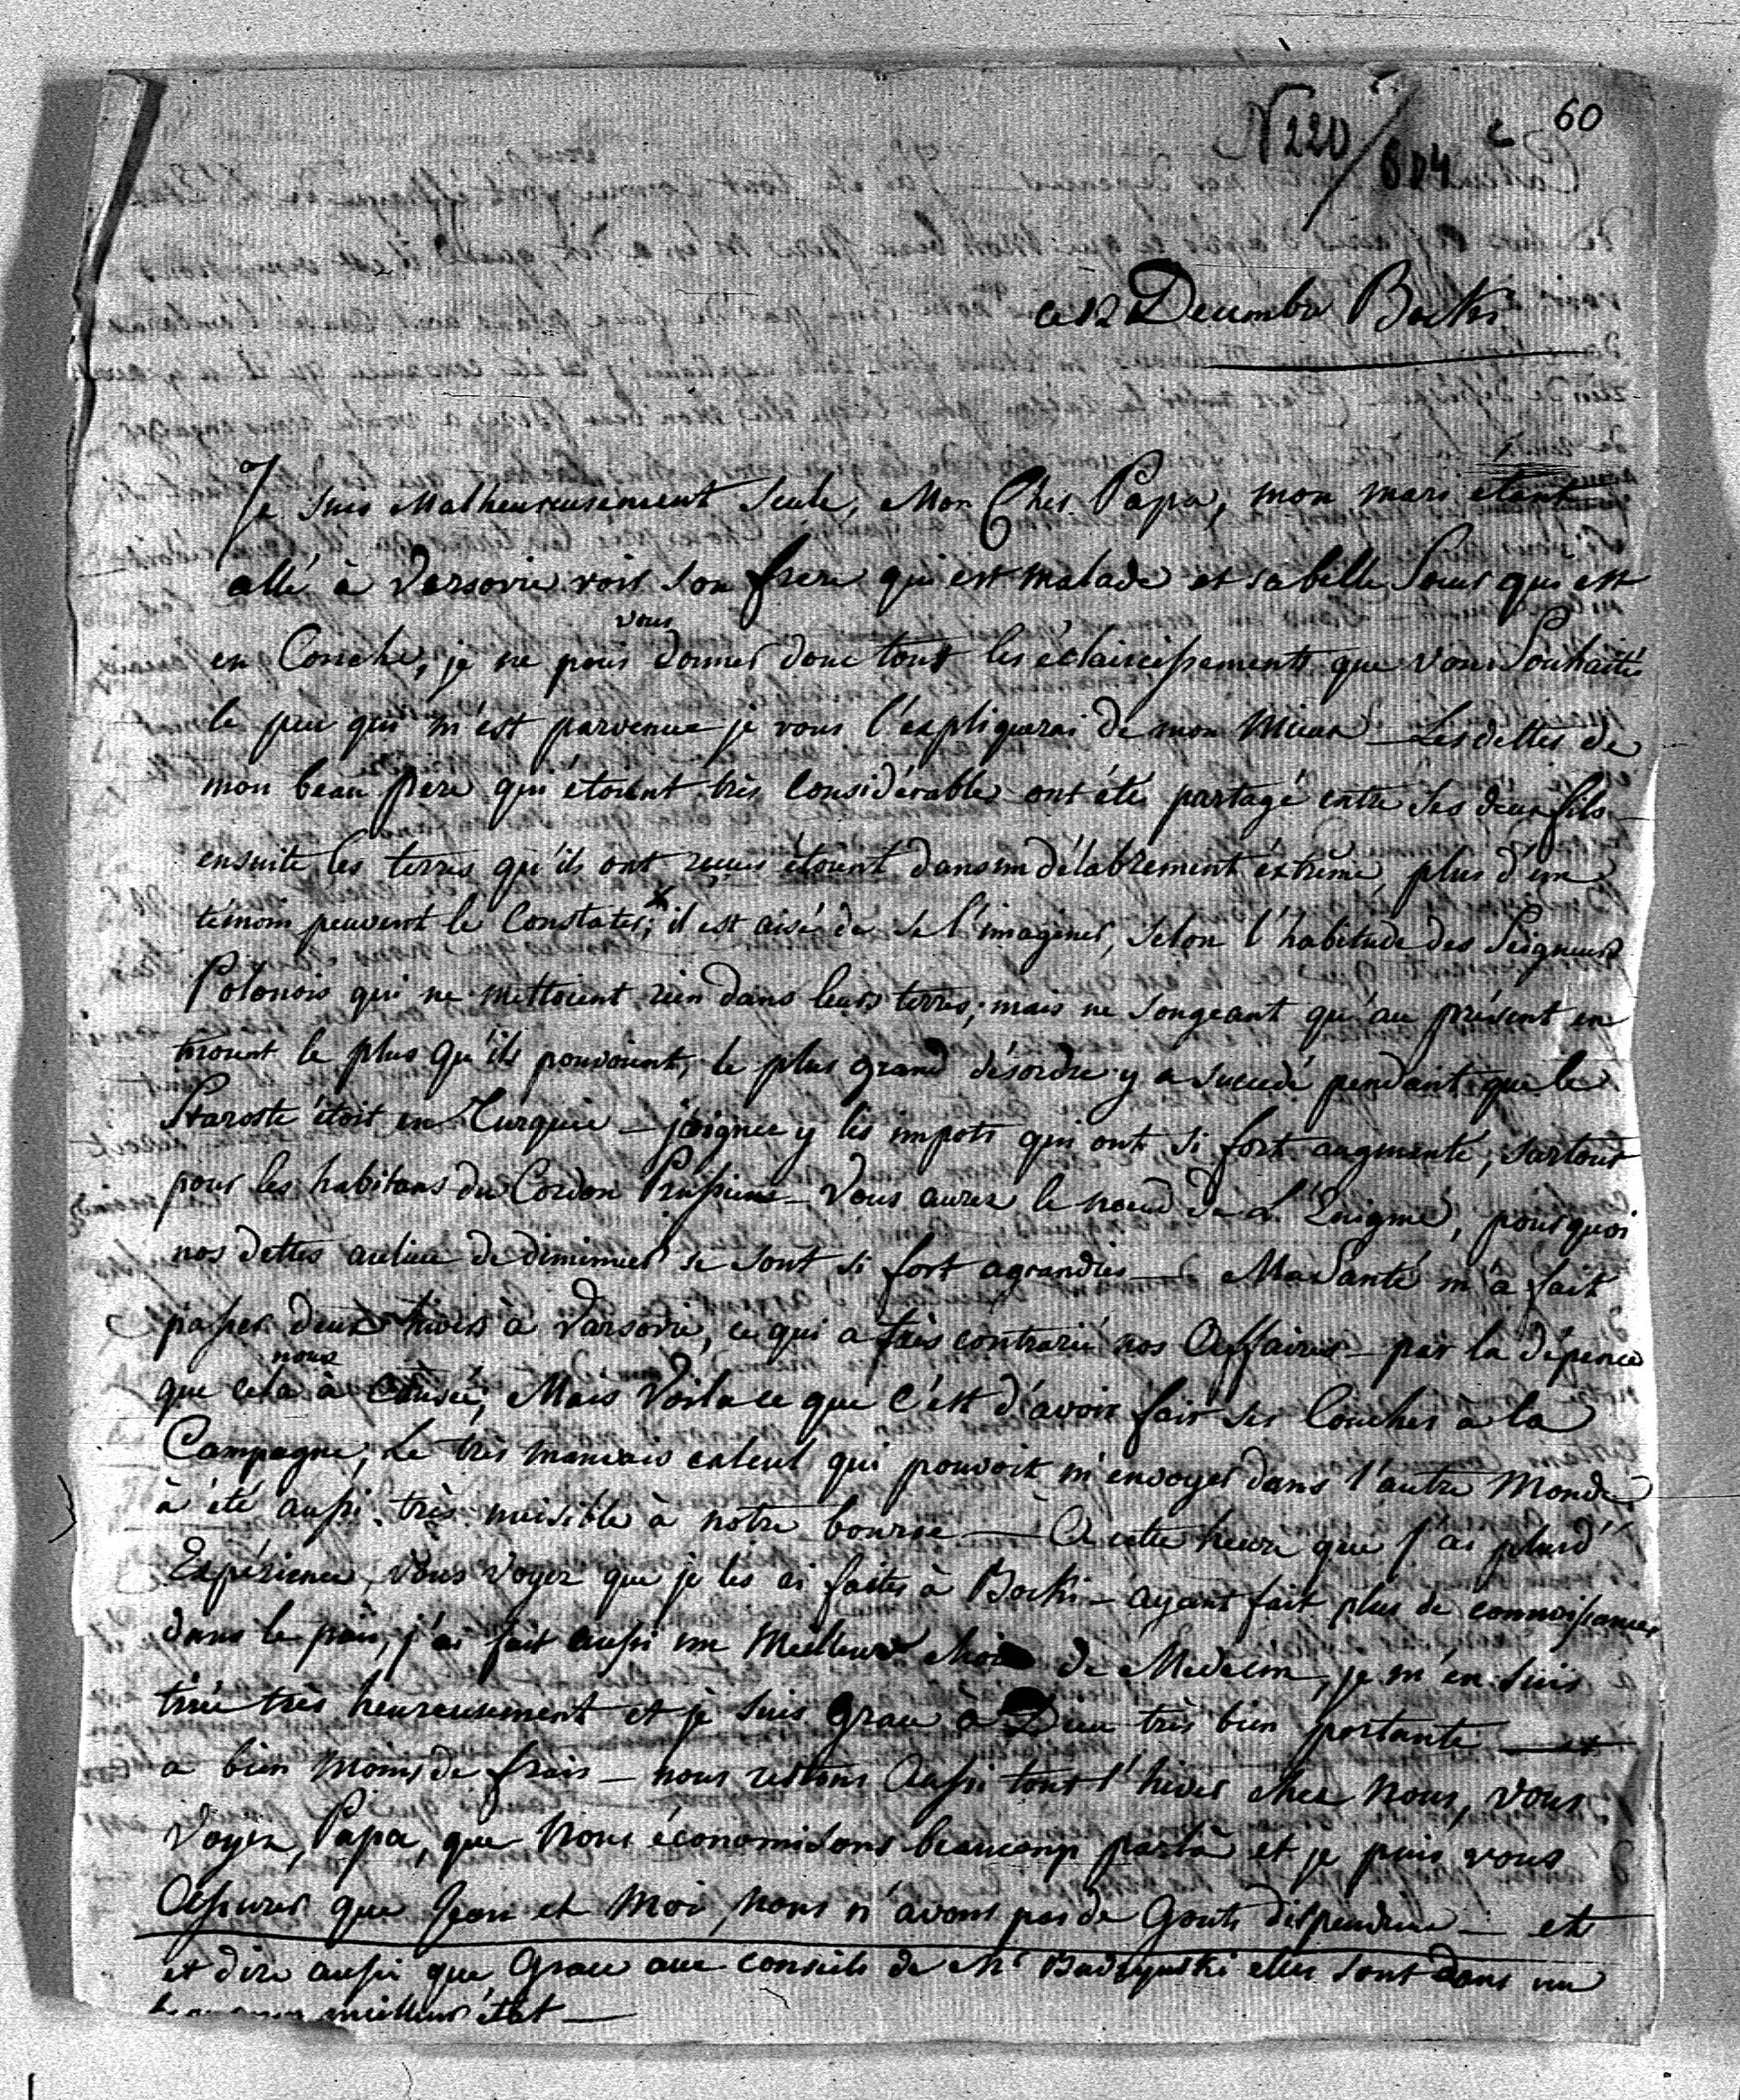 60
N 220/604
ce 12 Decembre Bocki
Je suis Malheureusement seule, Mon Cher Papa, mon mari étant
allé à Varsovie voir son frere qui est malade et sa belle Soeur qui est
en Couche, je ne puis vous donner donc tout les éclaircissements que vous Souhaités
le peu qui m'est parvenue je vous l'expliquerai de mon Mieux — Les dettes de
mon beau pere qui étoient très Considérables ont étés partagé entre ses deux fils —
ensuite les terres qu'ils ont reçues étoient dans un délabrement éxtrême, plus d'un
témoin peuvent le Constater; x il est aisé de se l'imaginer, selon l'habitude des Seigneurs
Polonois qui ne mettoient rien dans leurs terres; mais ne songeant qu'au présent en
tiroient le plus qu'ils pouvoient, le plus grand désordre y a succedé pendant que le
Staroste étoit en Turquie — joignez y les impots qui ont si fort augmenté, surtout
pour les habitans du Cordon Prussiens — Vous aurez le noeud de L'Enigme, pourquoi
nos dettes aulieu de diminuer se sont si fort agrandies — Ma Santé m'a fait
passer deux hivers à Varsovie, ce qui a très contrarié nos Affaires — par la dépence
que cela nous à causée; Mais Voila ce que c'est d'avoir fait ses Couches à la
Campagne, Le très mauvais calcul qui pouvoit m'envoyer dans l'autre Monde
à été aussi très nuisible à notre bourse — A cette heure que j'ai plus d'
Expérience, vous voyez que je les ai faites à Bocki — ayant fait plus de connoissances
dans le païs, j'ai fait aussi un Meilleur choix de Medecin, je m'en suis
tirée très heureusement et je suis Grace à Dieu très bien portante — et
a bien Moins de frais — nous restons Aussi tout l'hiver chez Nous, vous
Voyez, Papa, que Nous économisons beaucoup parlà et je puis vous
Assurer que Jean et Moi, nous n'avons pas de Gouts dispendieux — et
et dire aussi que Grace aux conseils de Mr sont dans un
meilleur état —